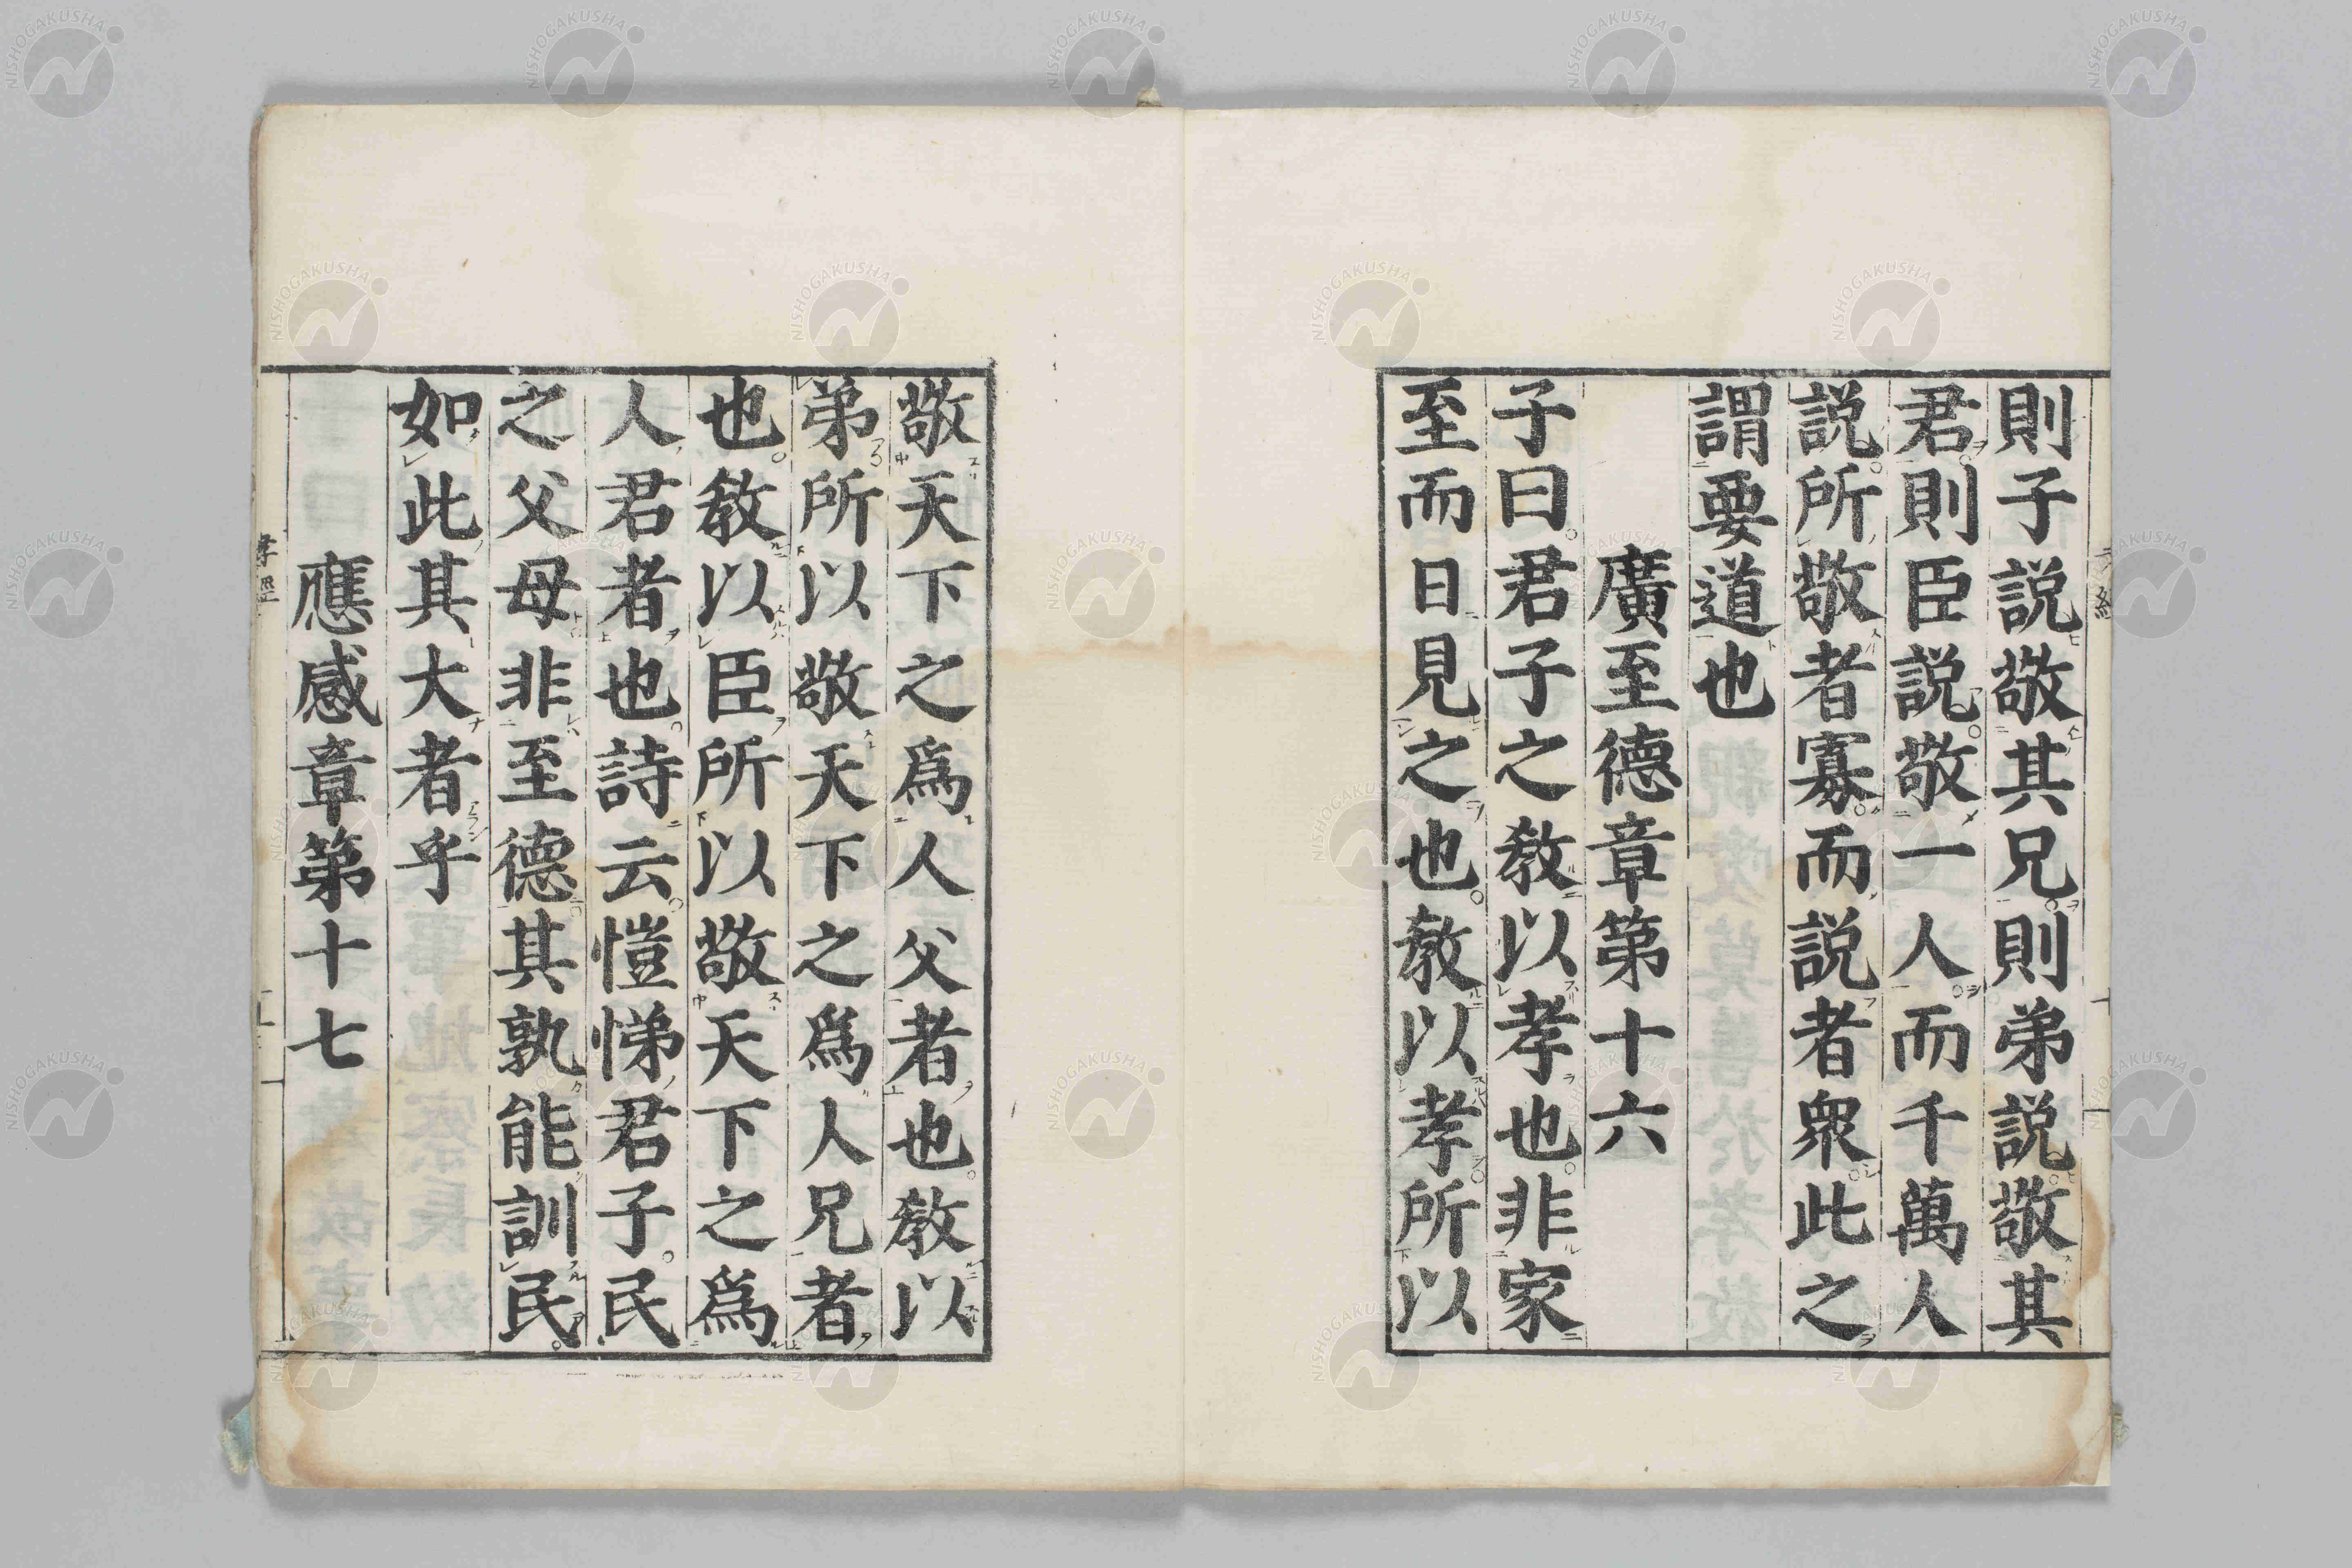 則子説敬其兄則弟説敬其
君則臣説敬一人而千萬人
説所敬者寡而説者衆此之
謂要道也
廣至德章第十六
子曰君子之教以孝也非家
至而日見之也教以孝所以
敬天下之爲人父者也教以
弟所以敬天下之爲人兄者
也教以臣所以敬天下之爲
人君者也詩云愷悌君子民
之父母非至德其孰能訓民
如此其大者乎
應感章第十七
孝經
NISHOGAKUSHA